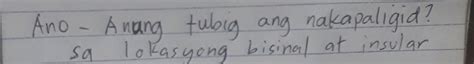 Ano - Anong tubig ang nakapaligid?
sa lokasyong bisinal at insular